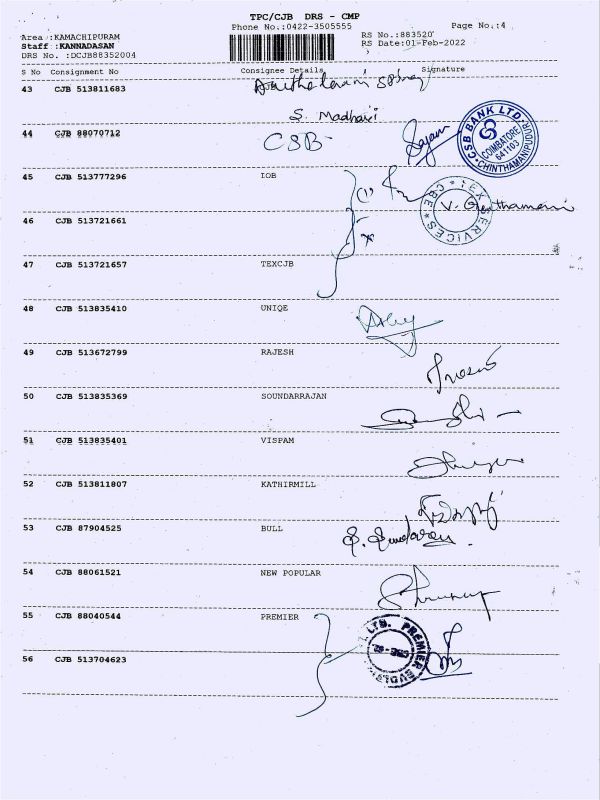 TPC/CJB DRS - CMP
Phone No.:0422-3505555 Page No.:4
Area :KAMACHIPURAM RS No.:883520
Staff :KANNADASAN RS Date:01-Feb-2022
DRS No. :DCJB88352004
S No Consignment No Consignee Details Signature
43 CJB 513811683
S. Madhavi
44 CJB 88070712 CSB
CSB BANK LTD. COIMBATORE 641103 CHINTHAMANIPUDUR
45 CJB 513777296 IOB
TEX SERVICES CBE
46 CJB 513721661
47 CJB 513721657 TEXCJB
48 CJB 513835410 UNIQE
49 CJB 513672799 RAJESH
50 CJB 513835369 SOUNDARRAJAN
51 CJB 513835401 VISPAM
52 CJB 513811807 KATHIRMILL
53 CJB 87904525 BULL
54 CJB 88061521 NEW POPULAR
55 CJB 88040544 PREMIER
LTD. PREMIER
56 CJB 513704623